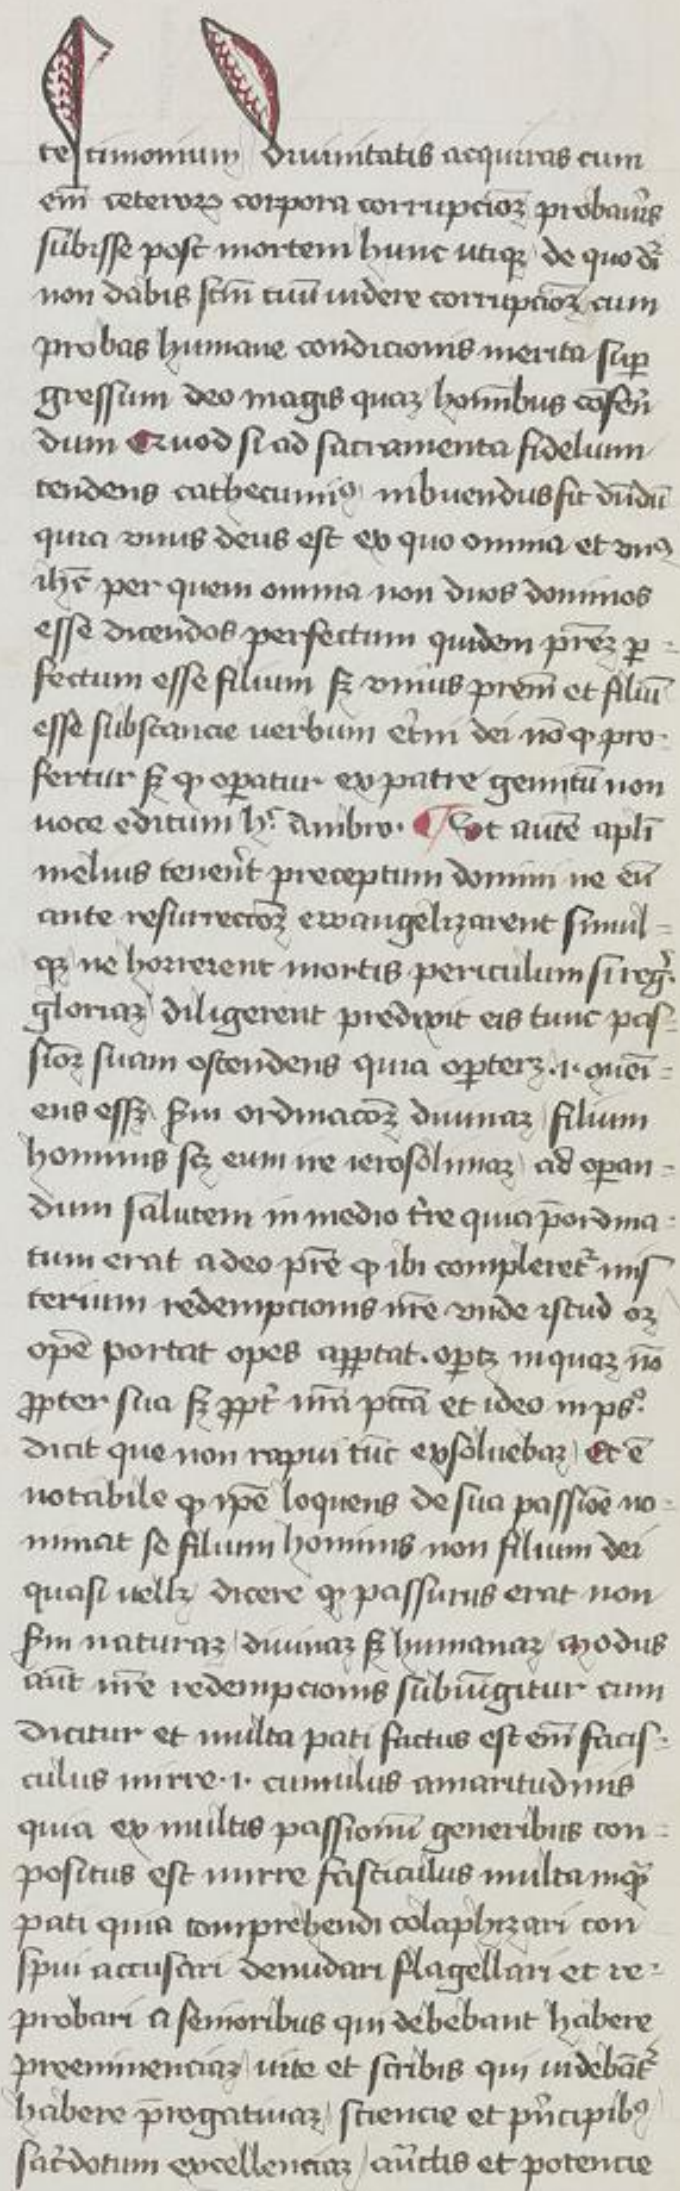 testimonium diuinitatis acquiras cum
em̄ ceteroꝝ corpora corrupcioꝫ probaũis
subisse post mortem hunc utiqꝫ de quo dr̄
non dabis scm̄ tuū uidere corrupcioꝫ cum
probas humane condicionis merita suꝑ
gressum deo magis quaꝫ hoīnibus cōferū
dum Quod si ad sacramenta fidelium
tendens cathecuminꝰ inbuendus sit dn̄dū
quia vnus deus est ex quo omnia et vnꝰ
ihc̄ per quem omnia non duos dominos
esse dicendos perfectum quidem pr̄eꝫ ꝑ-
fectum esse filium sꝫ vnius prem̄ et filiū
esse substancie uerbum et̄ni dei nō ꝙ pro-
fertur sꝫ ꝙ oꝑatur ex patre genitū non
uoce editum hͨ Ambro. ¶ Vt autē apl̄i
melius tenen̄t preceptum domini ne eū
ante resurreccōꝫ ewangelizarent simul-
qꝫ ne horrerent mortis periculum si regͥ.
gloriaꝫ diligerent predixit eis tunc pas-
sioꝫ suam ostendens quia oꝑterꝫ .i. queī-
ens essꝫ scꝺm ordinacōꝫ diuinaꝫ filium
hominis scꝫ eum ire ierosolimaꝫ ad oꝑan-
dum salutem in medio tr̄re quia p̄ordina-
tum erat a deo pr̄e ꝙ ibi compleret̄ mis
terium redempcionis nr̄e vnde istud oꝫ
opē portat opes apꝑtat. oꝑtꝫ inquaꝫ nō
ꝓpter sua sꝫ ꝓpt̄ nr̄a pctā et ideo in psͦ.
dicit que non rapui tūc exsoluebaꝫ Et ē
notabile ꝙ ip̄e loquens de sua passiōe no-
minat se filium hominis non filium dei
quasi uellꝫ dicere ꝙ passurus erat non
scꝺm naturaꝫ diuinaꝫ sꝫ humanaꝫ Modus
aūt nr̄e redempcionis subiūgitur cum
dicitur et multa pati factus est em̄ facis-
culus mirre .i. cumulus amaritudinis
quia ex multis passionū generibus con-
positus est mirre fasciculus multa inꝙͣ
pati quia comprehendi colaphizari con
spui accusari denudari flagellari et re-
probari a senioribus qui debebant habere
preeminenciaꝫ uite et scribis qui uidebāt̄
habere p̄rogatiuaꝫ sciencie et pn̄cipibꝰ
sac̄dotum excellenciaꝫ auc̄tis et potencie